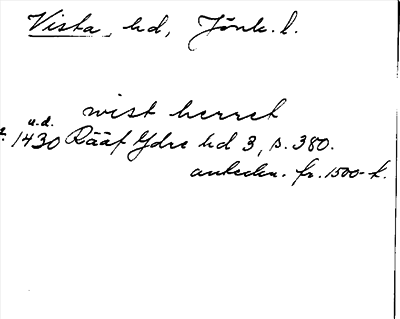 Vista, hd, Jönk. l.
wist herret
u.d.
1430 Rääf Ydre hd 3, s. 380.
anteckn. fr. 1500-t.